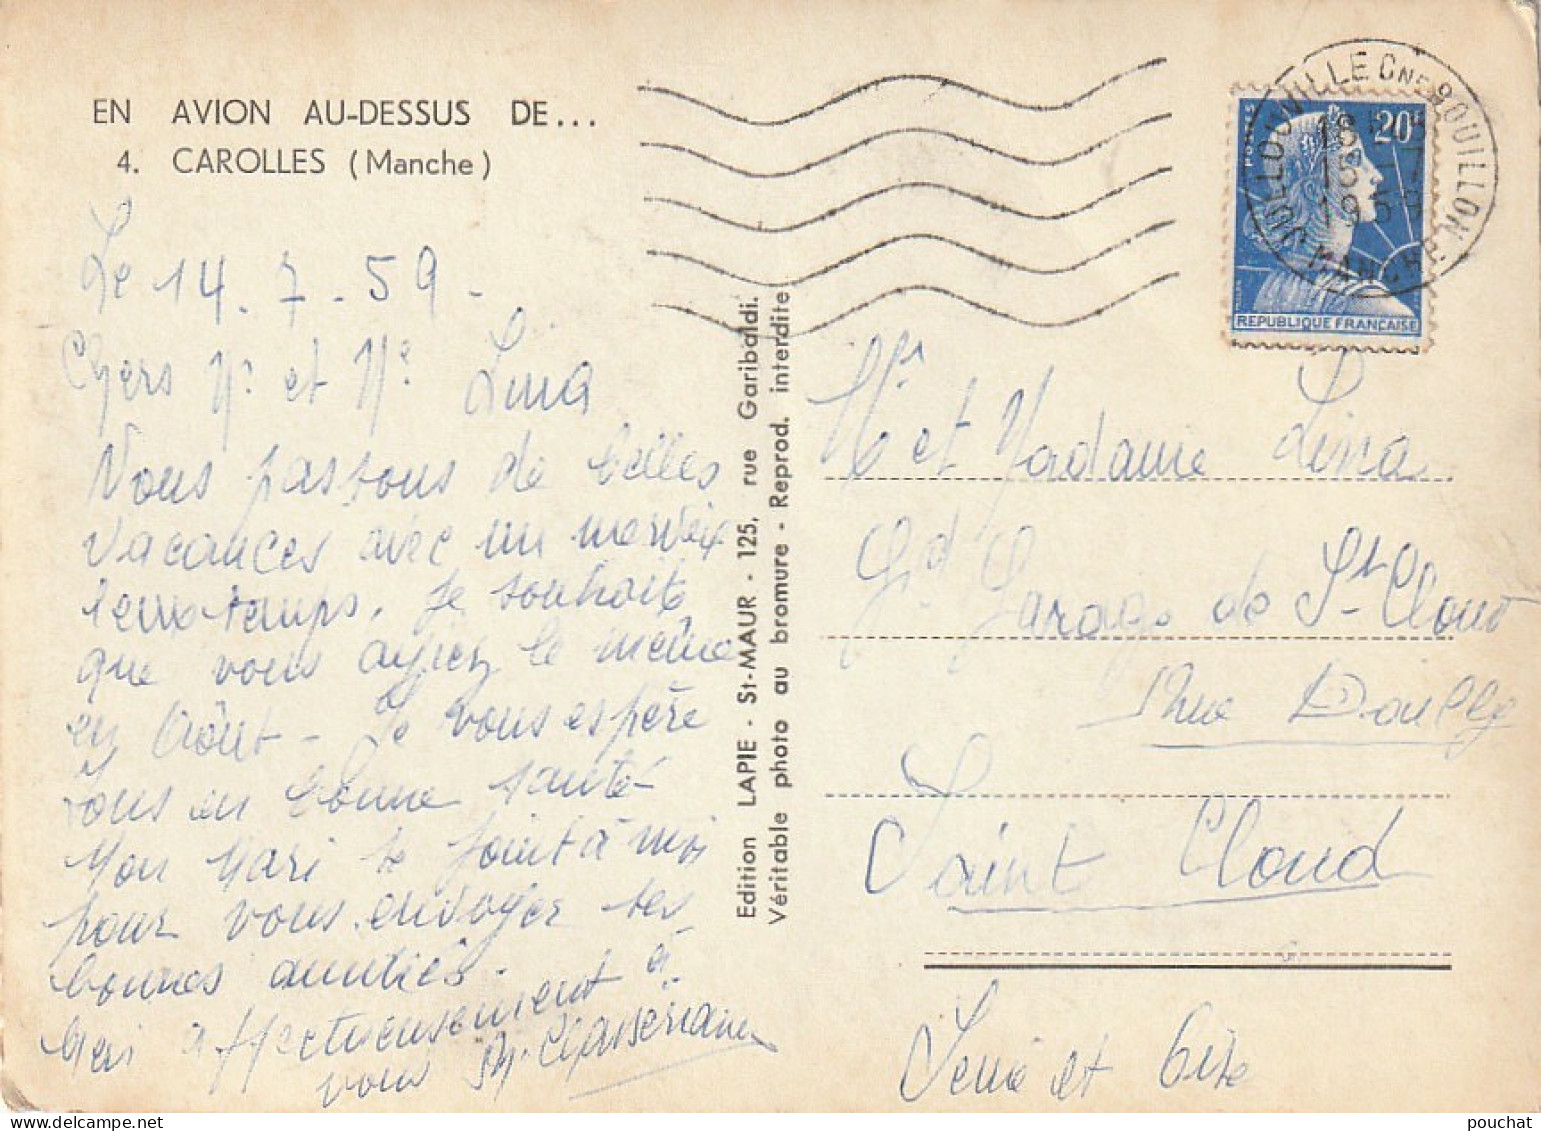 EN AVION AU-DESSUS DE...
4. CAROLLES (Manche)
Le 14.7.59-
Chers Mr et Me Lina
Nous passons de belles
vacances avec un
temps. Je souhaite
que vous ayiez le même
en Août - Je vous espère
tous en bonne santé
Mon Mari se joint à moi
pour vous envoyer ses
bonnes amitiés.
affectueusement à
vous
Edition LAPIE - St-MAUR - 125, rue Garibaldi.
Véritable photo au bromure - Reprod. interdite
JULLOUVILLE Cne BOUILLON
MANCHE
15-7
1959
POSTES
20F
REPUBLIQUE FRANÇAISE
Mr et Madame Lina
Gd Garage de St-Cloud
Rue Dailly
Saint Cloud
Seine et Oise
pouchat